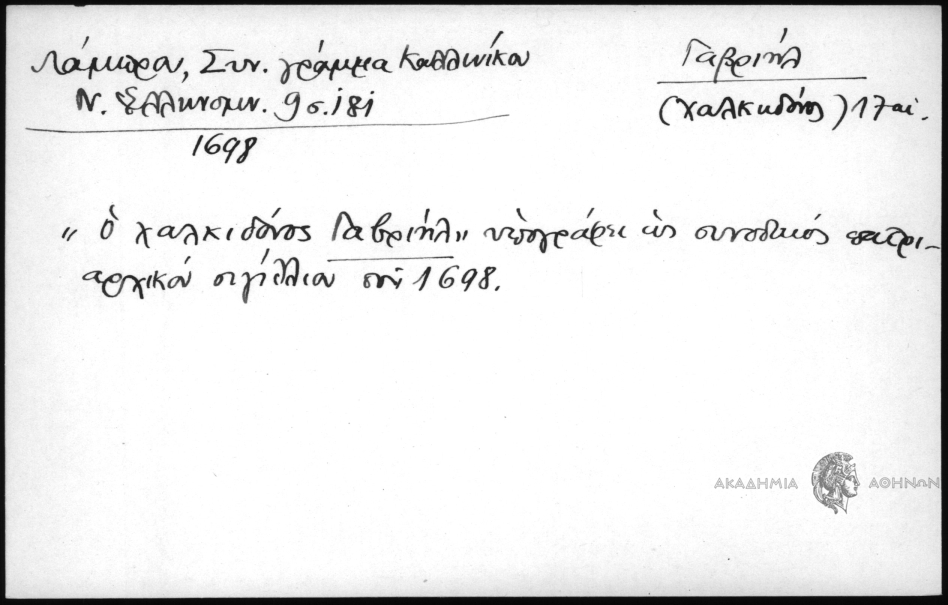 Λάμπρου, Συν. γράμμα Καλλινίκου
Ν. Ἑλληνομν. 9 σ. 181
1698
Γαβριήλ
(Χαλκηδόνος) 17 αἰ.
„ ὁ Χαλκιδόνος Γαβριήλ„ ὑπογράφει ὡς συνοδικός πατρι-
αρχικόν σιγίλλιον τοῦ 1698.
ΑΚΑΔΗΜΙΑ ΑΘΗΝΩΝ